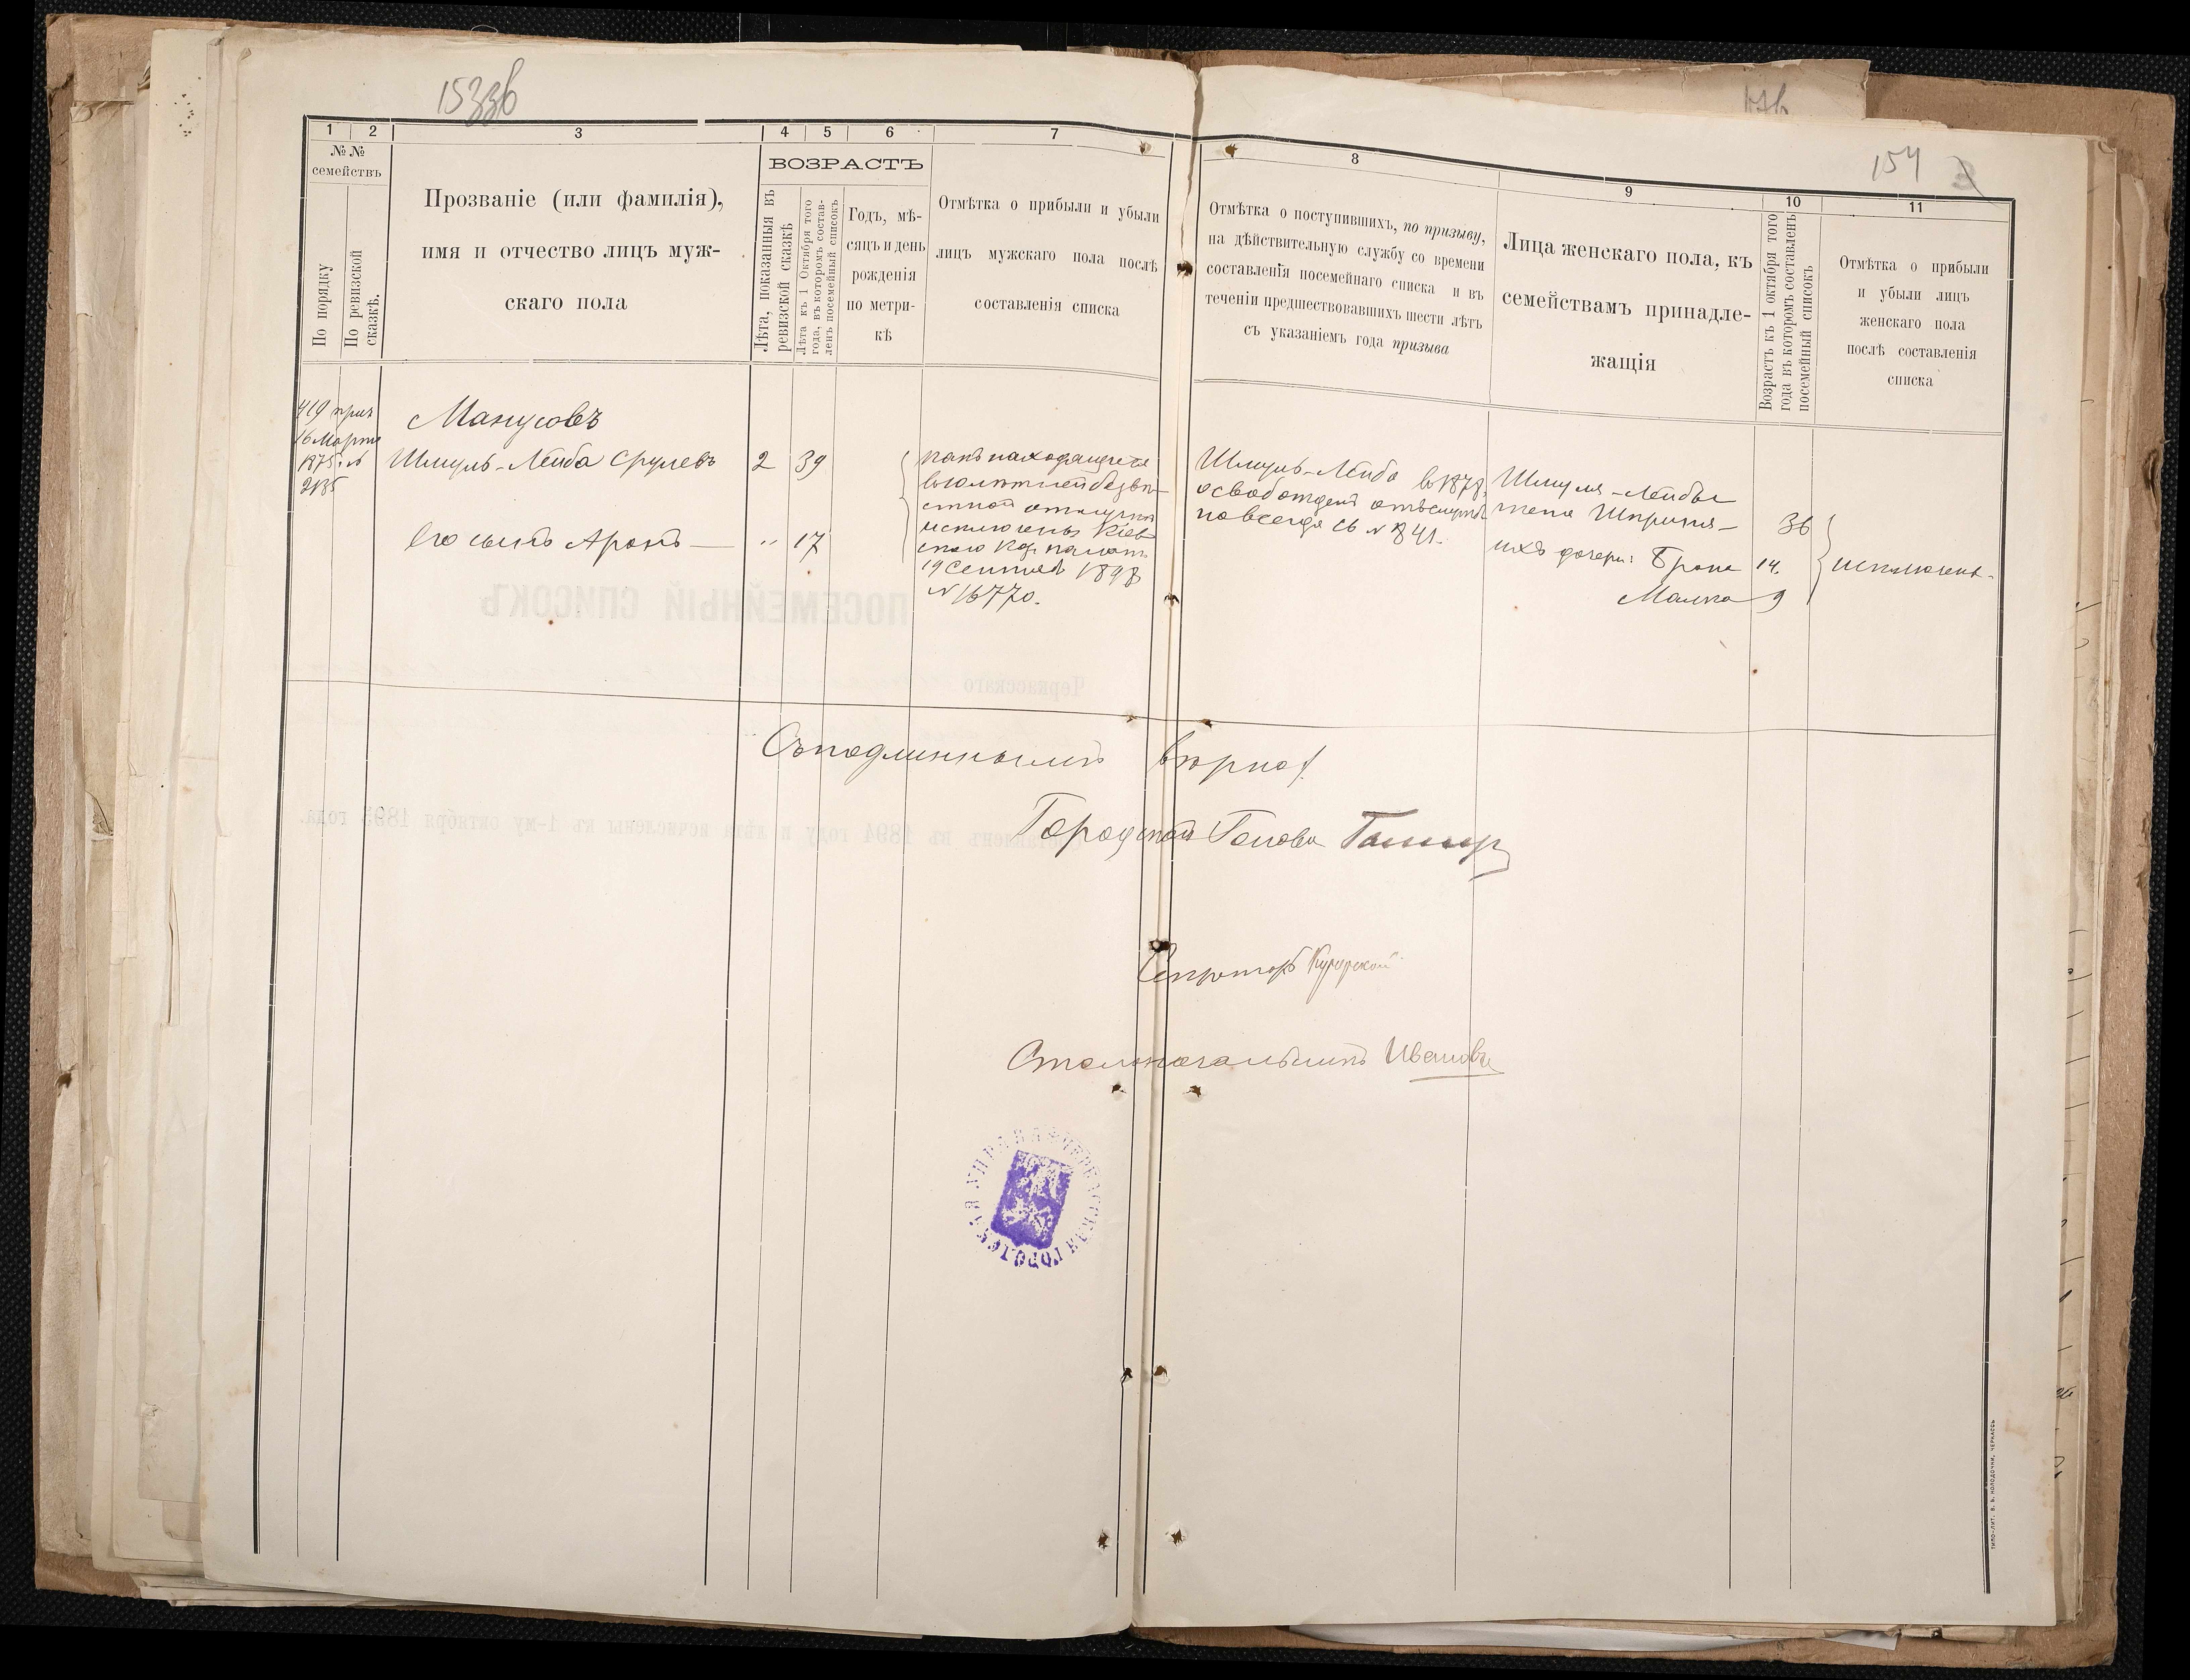 153зв
154
1 2 3 4 5 6 7
8 9 10 11
№ №
семействъ
По порядку
По ревизской
сказкѣ.
Прозваніе (или фамилія),
имя и отчество лицъ муж-
скаго пола
ВОЗРАСТЪ
Лѣта, показанныя въ
ревизской сказкѣ
Лѣта къ 1 Октября того
года, въ которомъ состав-
ленъ посемейный списокъ
Годъ, мѣ-
сяцъ и день
рожденія
по метри-
кѣ
Отмѣтка о прибыли и убыли
лицъ мужскаго пола послѣ
составленія списка
Отмѣтка о поступившихъ, по призыву,
на дѣйствительную службу со времени
составленія посемейнаго списка и въ
теченіи предшествовавшихъ шести лѣтъ
съ указаніемъ года призыва
Лица женскаго пола, къ
семействамъ принадле-
жащія
Возрастъ къ 1 октября того
года въ которомъ составленъ
посемейный списокъ
Отмѣтка о прибыли
и убыли лицъ
женскаго пола
послѣ составленія
списка
419 прич
16 Марта
1875 г. №
2185
Манусовъ
Шмуль-Лейба Срулевъ 2 39
Его сынъ Аронъ — " 17
какъ находящіеся
въ 10 лѣтней безвѣ-
стной отлучкѣ
исключены Кіев
скою Каз. палат.
19 Сентяб 1898
№ 16770.
Шмуль-Лейба въ 1878
освобожденъ отъ службы
навсегда св № 841.
Шмуля-Лейбы
жена Шпринця — 36
ихъ дочери: Брана 14.
Малка 9
исключены.
Съ подлиннымъ вѣрно:
Городской Голова
Секретарь
Столоначальникъ Ивановъ
ЧЕРКАССКАЯ ГОРОДСКАЯ УПРАВА
ПОСЕМЕЙНЫЙ СПИСОКЪ
Черкасскаго
Составленъ въ 1894 году и лѣта исчислены къ 1-му октября 1895 года.
ТИПО-ЛИТ. В. В. КОЛОДОЧКИ, ЧЕРКАССЪ